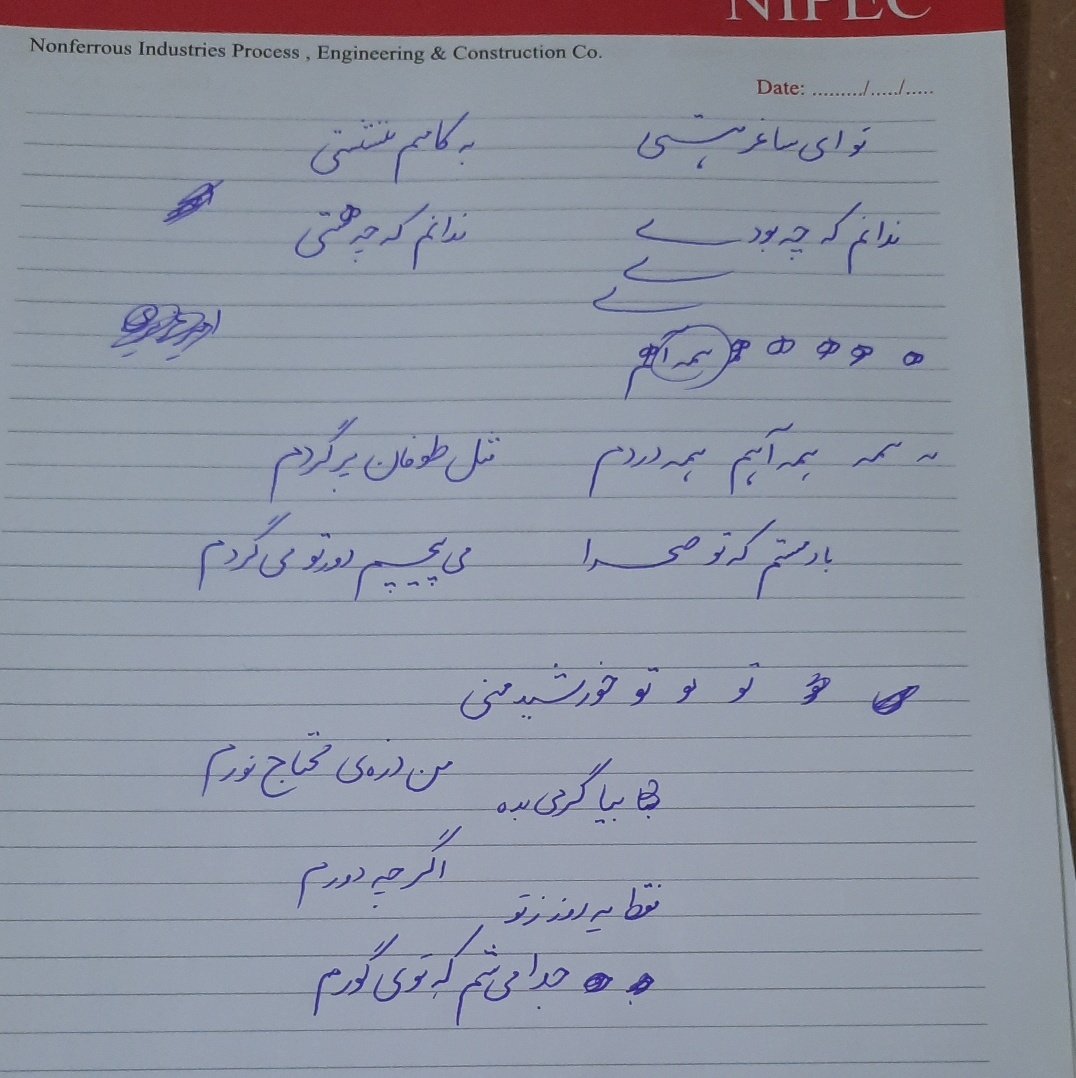 NIPEC
Nonferrous Industries Process , Engineering & Construction Co.
Date: ........./...../.....
تو ای ساغر هستی به کامم ننشستی
ندانم که چه بودی ندانم که چه هستی
همه آ
یه همه همه آهم همه دردم مثل طوفان پر گردم
باد مستم که تو صحرا می پیچیم دور تو می گردم
تو تو تو خورشید منی
من ذره‌ی محتاج نورم
بیا گرمی بده
اگر چه دورم
فقط یه روز ز تو
جدا می شم که توی گورم